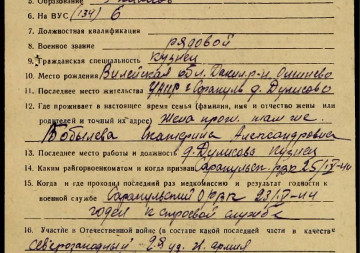 5. Образование
6. На ВУС (134) 6
7. Должностная квалификация
8. Военное звание рядовой
9. Гражданская специальность кузнец
10. Место рождения Вилейская обл.
11. Последнее место жительства УАССР г. Сарапуль д. Дулисово
12. Где проживает в настоящее время семья (фамилия, имя и отчество жены или
родителей и точный их адрес) Жена прож. там же.
Бобылева Екатерина Александровна
13. Последнее место работы и должность д. Дулисово кузнец
14. Каким райгорвоенкоматом и когда призван Сарапульск. РВК 25/IV-44
15. Когда и где проходил последний раз медкомиссию и результат годности к
военной службе Сарапульский 23/IV-44
годен к строевой службе
16. Участие в Отечественной войне (в составе какой последней части и в качестве
Северозападный 28 армия